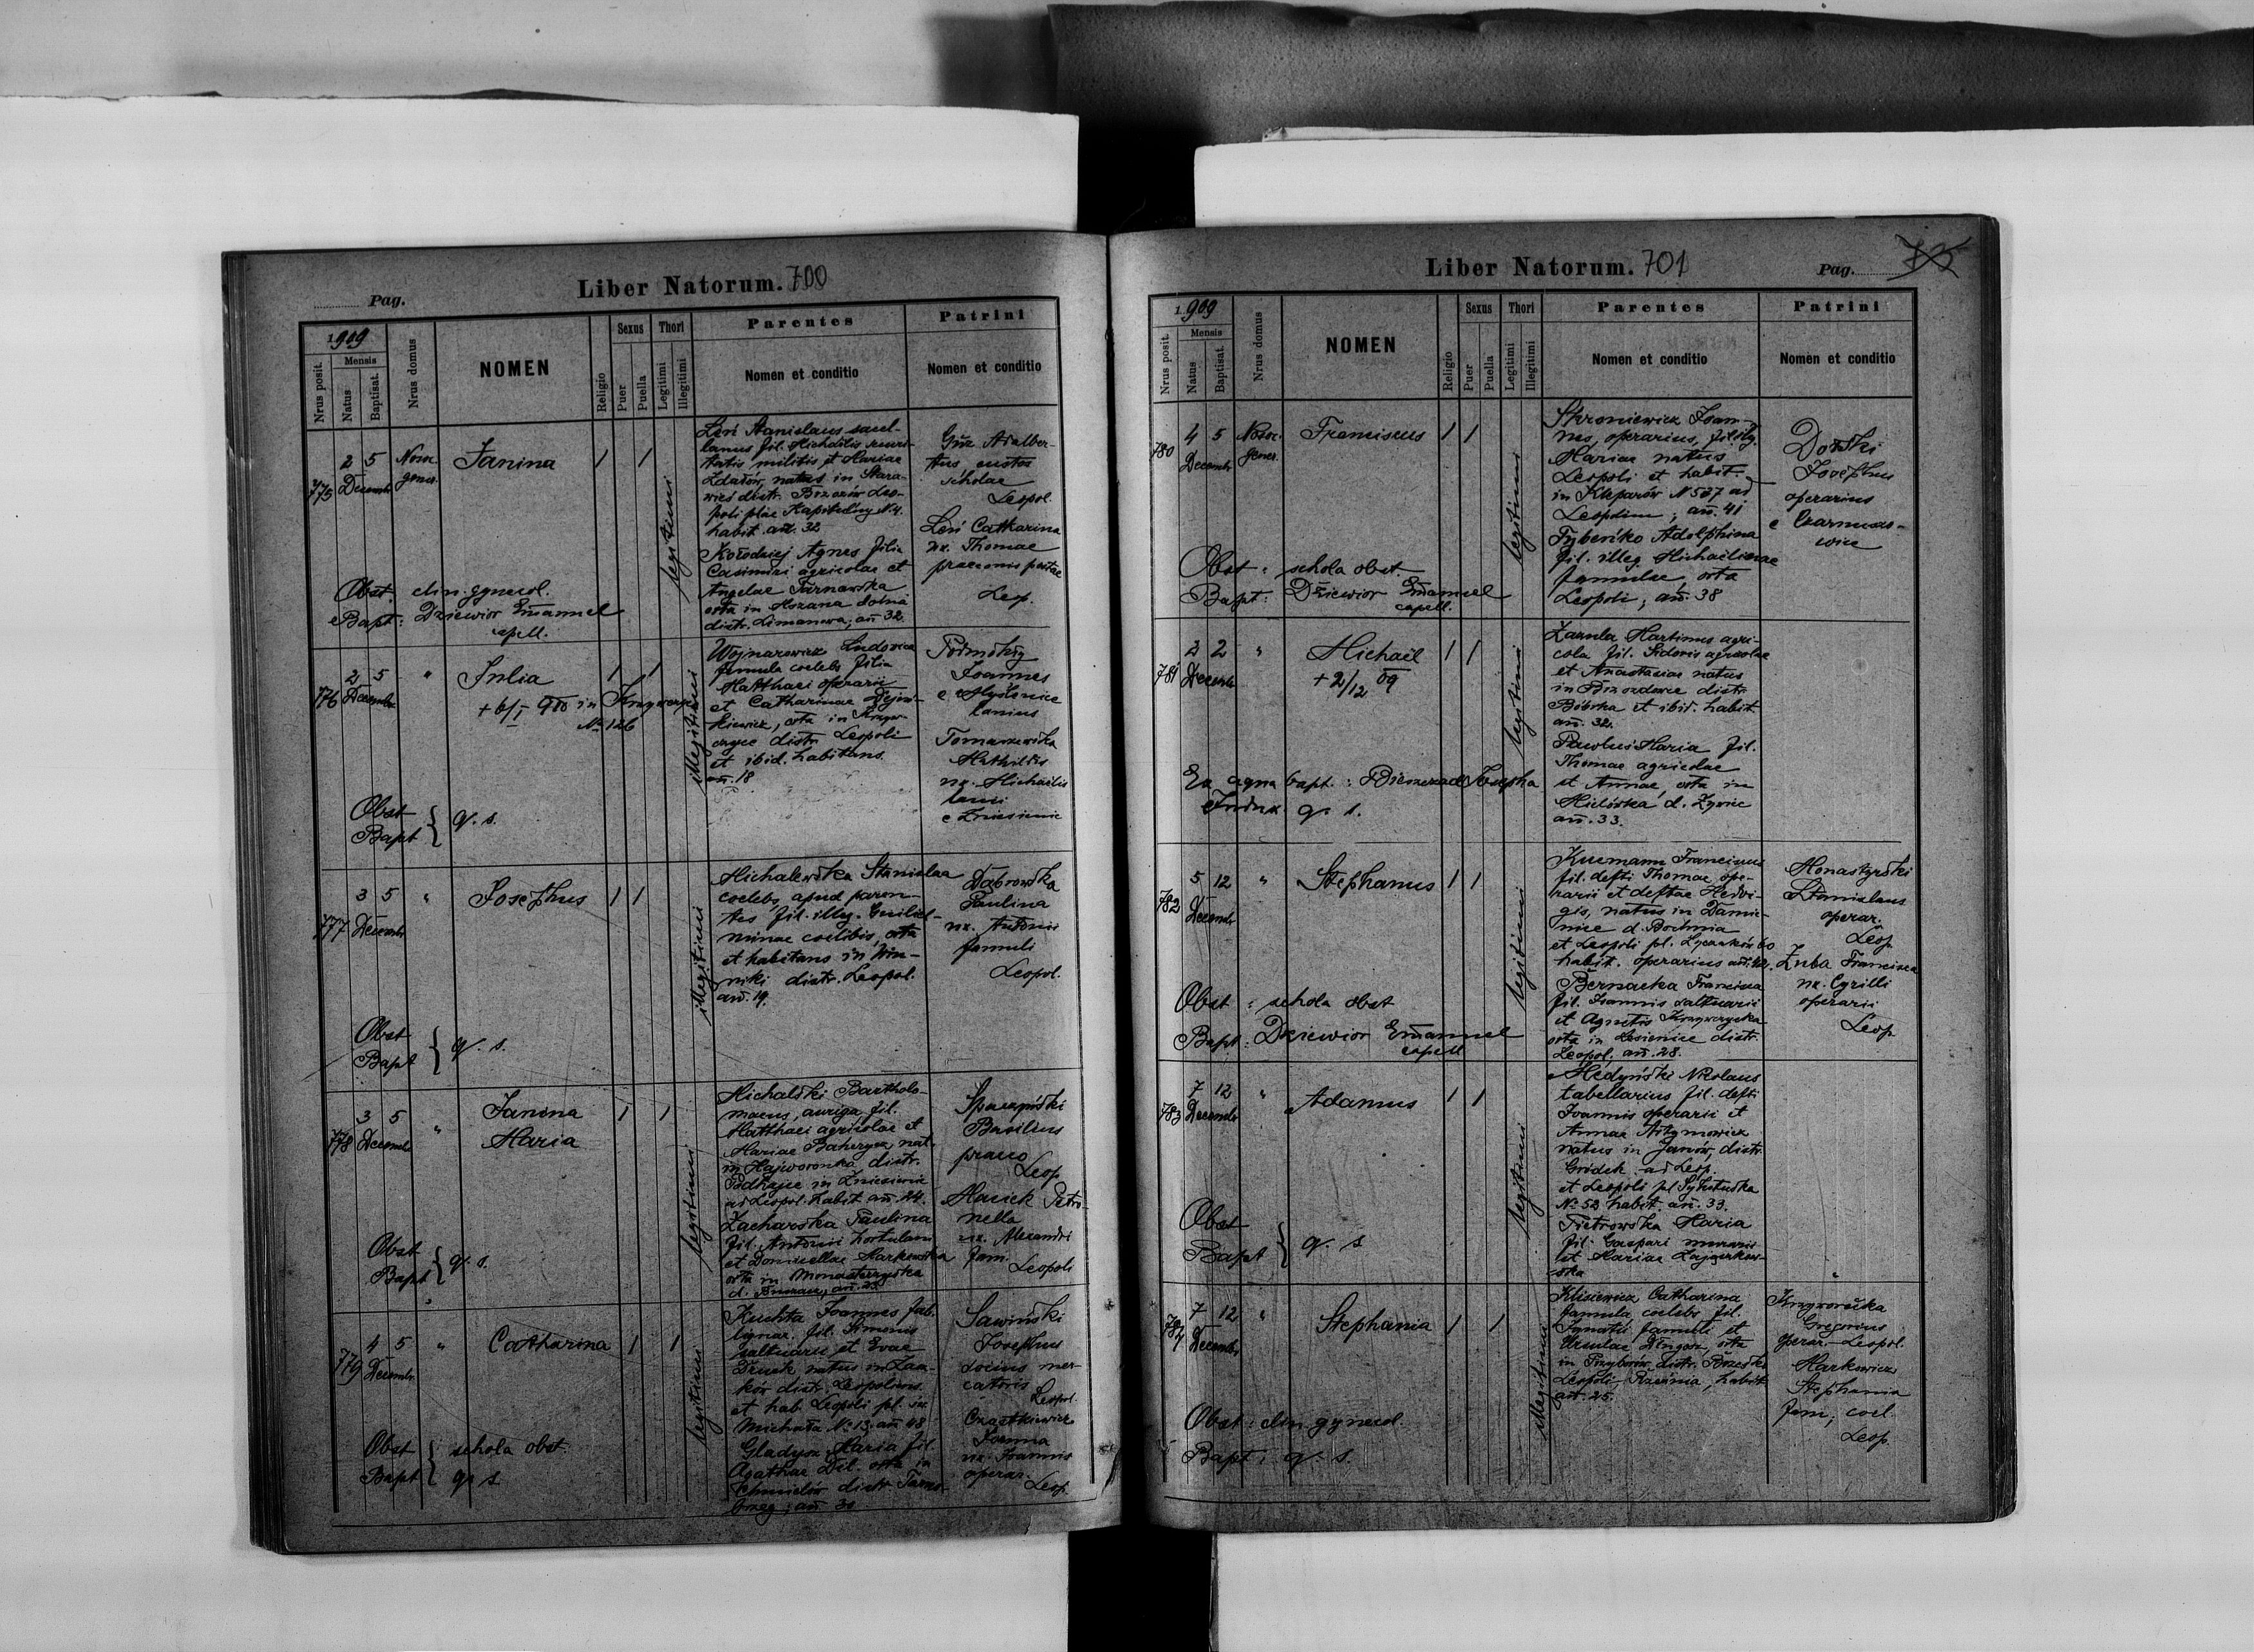 Pag.
Liber Natorum. 700
1909
Nrus posit.
Mensis
Natus
Baptisat.
Nrus domus
NOMEN
Religio
Sexus
Puer
Puella
Thori
Legitimi
Illegitimi
Parentes
Nomen et conditio
Patrini
Nomen et conditio
775
2 5
Decembr
Nosoc.
gener.
Janina
1 1
legitimi
Leń Stanislaus
lanus fil. Michaëlis
militis et Mariae
natus in Stara-
wieś distr. Brzozów Leo-
poli plac Kapitulny N 4.
habit. añ. 32
Kołodziej Agnes filia
Casimiri agricolae et
Angelae Turnawska
orta in Mszana dolna
distr. Limanowa, añ 32.
Adalber-
tus custos
scholae
Leopol.
Leń Catharina
ux. Thomae
praeconis
Leop.
Obst. clin. gynecol.
Bapt: Dziewior Emanuel
capell.
776
2 5
Decembr
"
Julia
+ 6/I 910 in Krzywczyce
No 126
1 1
illegitimi
Wojnarowicz Ludovica
famula coelebs filia
Matthaei operarii
et Catharinae
orta in Krzyw-
czyce distr. Leopoli
et ibid. habitans
añ. 18
Joannes
lanius
Tomaszewska
Mathildis
ux. Michaëlis
lanii
e Zniesienie
Obst
Bapt } q. s.
777
3 5
Decembr
"
Josephus
1 1
illegitimi
Michalewska Stanislaa
coelebs, apud paren-
tes, fil. illeg. Guilel-
minae coelibis, orta
et habitans in Win-
niki distr. Leopol.
añ. 19.
Dąbrowska
Paulina
ux. Antonii
famuli
Leopol.
Obst
Bapt } q. s.
778
3 5
Decembr
"
Janina
Maria
1 1
legitimi
Michalski Bartholo-
maeus, auriga, fil.
Matthaei agricolae et
Mariae nat.
in Hajworonka distr.
Podhajce in Zniesienie
ad Leopol. habit. añ. 24.
Zacharska Paulina
fil. Antonii hortulani
et Domicellae Markowska
orta in Monasterzyska
d. Buczacz, añ. 23
Basilius
praeco
Leop
Maciek Petro-
nella
ux. Alexandri
fam.
Leopoli
Obst
Bapt } q. s.
779
4 5
Decembr
"
Catharina
1 1
legitimi
Kuchta Joannes fab.
lignar. fil. Simonis
saltuarii et Evae
natus in
distr. Leopoliens.
et hab. Leopoli pl. św.
Michała No 13. añ 48
Gladysz Maria fil.
Agathae orta in
Chmielów distr. Tarno-
brzeg; añ 30
Sawiński
Josephus
socius mer-
catoris
Leopol.
Joanna
ux. Joannis
operar.
Leop.
Obst
Bapt } schola obst.
q. s.
Liber Natorum. 701
Pag.
1909
Nrus posit.
Mensis
Natus
Baptisat.
Nrus domus
NOMEN
Religio
Sexus
Puer
Puella
Thori
Legitimi
Illegitimi
Parentes
Nomen et conditio
Patrini
Nomen et conditio
780
4 5
Decembr
Nosoc.
gener.
Franciscus
1 1
legitimi
Skroniewicz Joan-
nes, operarius, fil. illg.
Mariae natus
Leopoli et habit.
in Kleparów N 537 ad
Leopolim; añ. 41
Adolphina
fil. illeg. Michaelinae
famulae, orta
Leopoli; añ. 38
Josephus
operarius
e Czarnuszo-
wice
Obst: schola obst.
Bapt: Dziewior Emanuel
capell.
781
2 2
Decembr
"
Michaël
+ 2/12 09
1 1
legitimi
Martinus agri-
cola fil. Sidoris agricolae
et Anastasiae natus
in Brzozdowce distr.
Bóbrka et ibid. habit
añ. 32.
Maria fil.
Thomae agricolae
et Annae, orta in
d. Żywiec
añ. 33.
Ex aqua bapt.: Josepha
q. s.
782
5 12
Decembr
"
Stephanus
1 1
legitimi
Kucmann Franciscus
fil. defti Thomae ope-
rarii et deftae Hedvi-
gis, natus in Damie-
nice d. Bochnia
et Leopoli pl. Łyczaków 60
habit. operarius añ. 42.
Bernacka Francisca
fil. Joannis saltuarii
et Agnetis Krzywczycka
orta in Lesienice distr.
Leopol. añ. 28.
Monastyrski
Stanislaus
operar.
Leop
Zuba Francisca
ux. Cyrilli
operarii
Leop
Obst: schola obst
Bapt: Dziewior Emanuel
capell
783
7 12
Decembr
"
Adamus
1 1
legitimi
Medyński Nicolaus
tabellarius fil. defti
Joannis operarii et
Annae Artymowicz
natus in Janów, distr.
Gródek ad Leop.
et Leopoli pl Sykstuska
No 52 habit. añ. 33.
Pietrowska Maria
fil. Gaspari murarii
et Mariae
Obst
Bapt } q. s
784
7 12
Decembr
"
Stephania
1 1
illegitimi
Klisiewicz Catharina
famula, coelebs fil.
Ignatii famuli et
Ursulae Długosz, orta
in Przyborów, distr. Brzesko
Leopoli, habit
añ. 25.
Gregorius
operar. Leopol.
Markowicz
Stephania
fam, coel.
Leop.
Obst: clin. gynecol.
Bapt: q. s.